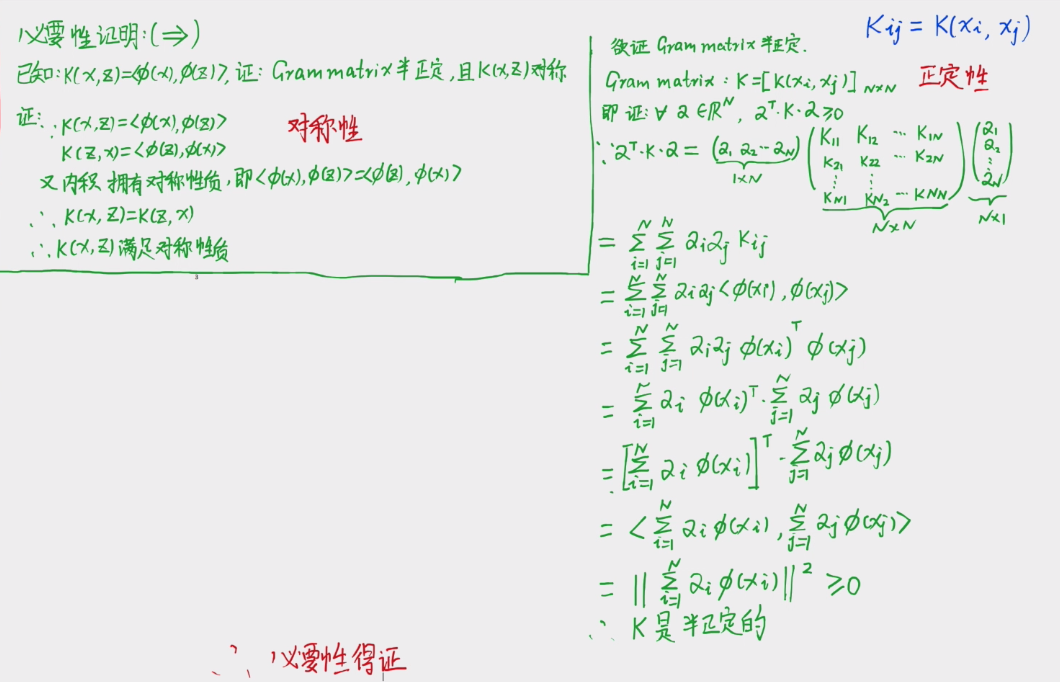 必要性证明:(⇒)
已知:K(x,z)=<φ(x),φ(z)>,证: Gram matrix半正定,且K(x,z)对称
证:∵K(x,z)=<φ(x),φ(z)>
K(z,x)=<φ(z),φ(x)>
对称性
又内积拥有对称性质,即<φ(x),φ(z)>=<φ(z),φ(x)>
∴K(x,z)=K(z,x)
∴K(x,z)满足对称性质
Kij = K(xi, xj)
欲证 Gram matrix 半正定.
Gram matrix: K=[K(xi,xj)]N×N
正定性
即证:∀ α∈ℝ^N, α^T·K·α≥0
∵α^T·K·α = (α1 α2 ⋯ αN) (K11 K12 ⋯ K1N
K21 K22 ⋯ K2N
⋮ ⋮
KN1 KN2 ⋯ KNN) (α1 α2 ⋮ αN)
1×N N×N N×1
= Σ_{i=1}^N Σ_{j=1}^N αiαj Kij
= Σ_{i=1}^N Σ_{j=1}^N αiαj<φ(xi),φ(xj)>
= Σ_{i=1}^N Σ_{j=1}^N αiαj φ(xi)^T φ(xj)
= Σ_{i=1}^N αi φ(xi)^T · Σ_{j=1}^N αj φ(xj)
= [Σ_{i=1}^N αi φ(xi)]^T · Σ_{j=1}^N αj φ(xj)
= <Σ_{i=1}^N αi φ(xi), Σ_{j=1}^N αj φ(xj)>
= ||Σ_{i=1}^N αi φ(xi)||^2 ≥0
∴ K是半正定的
∴ 必要性得证